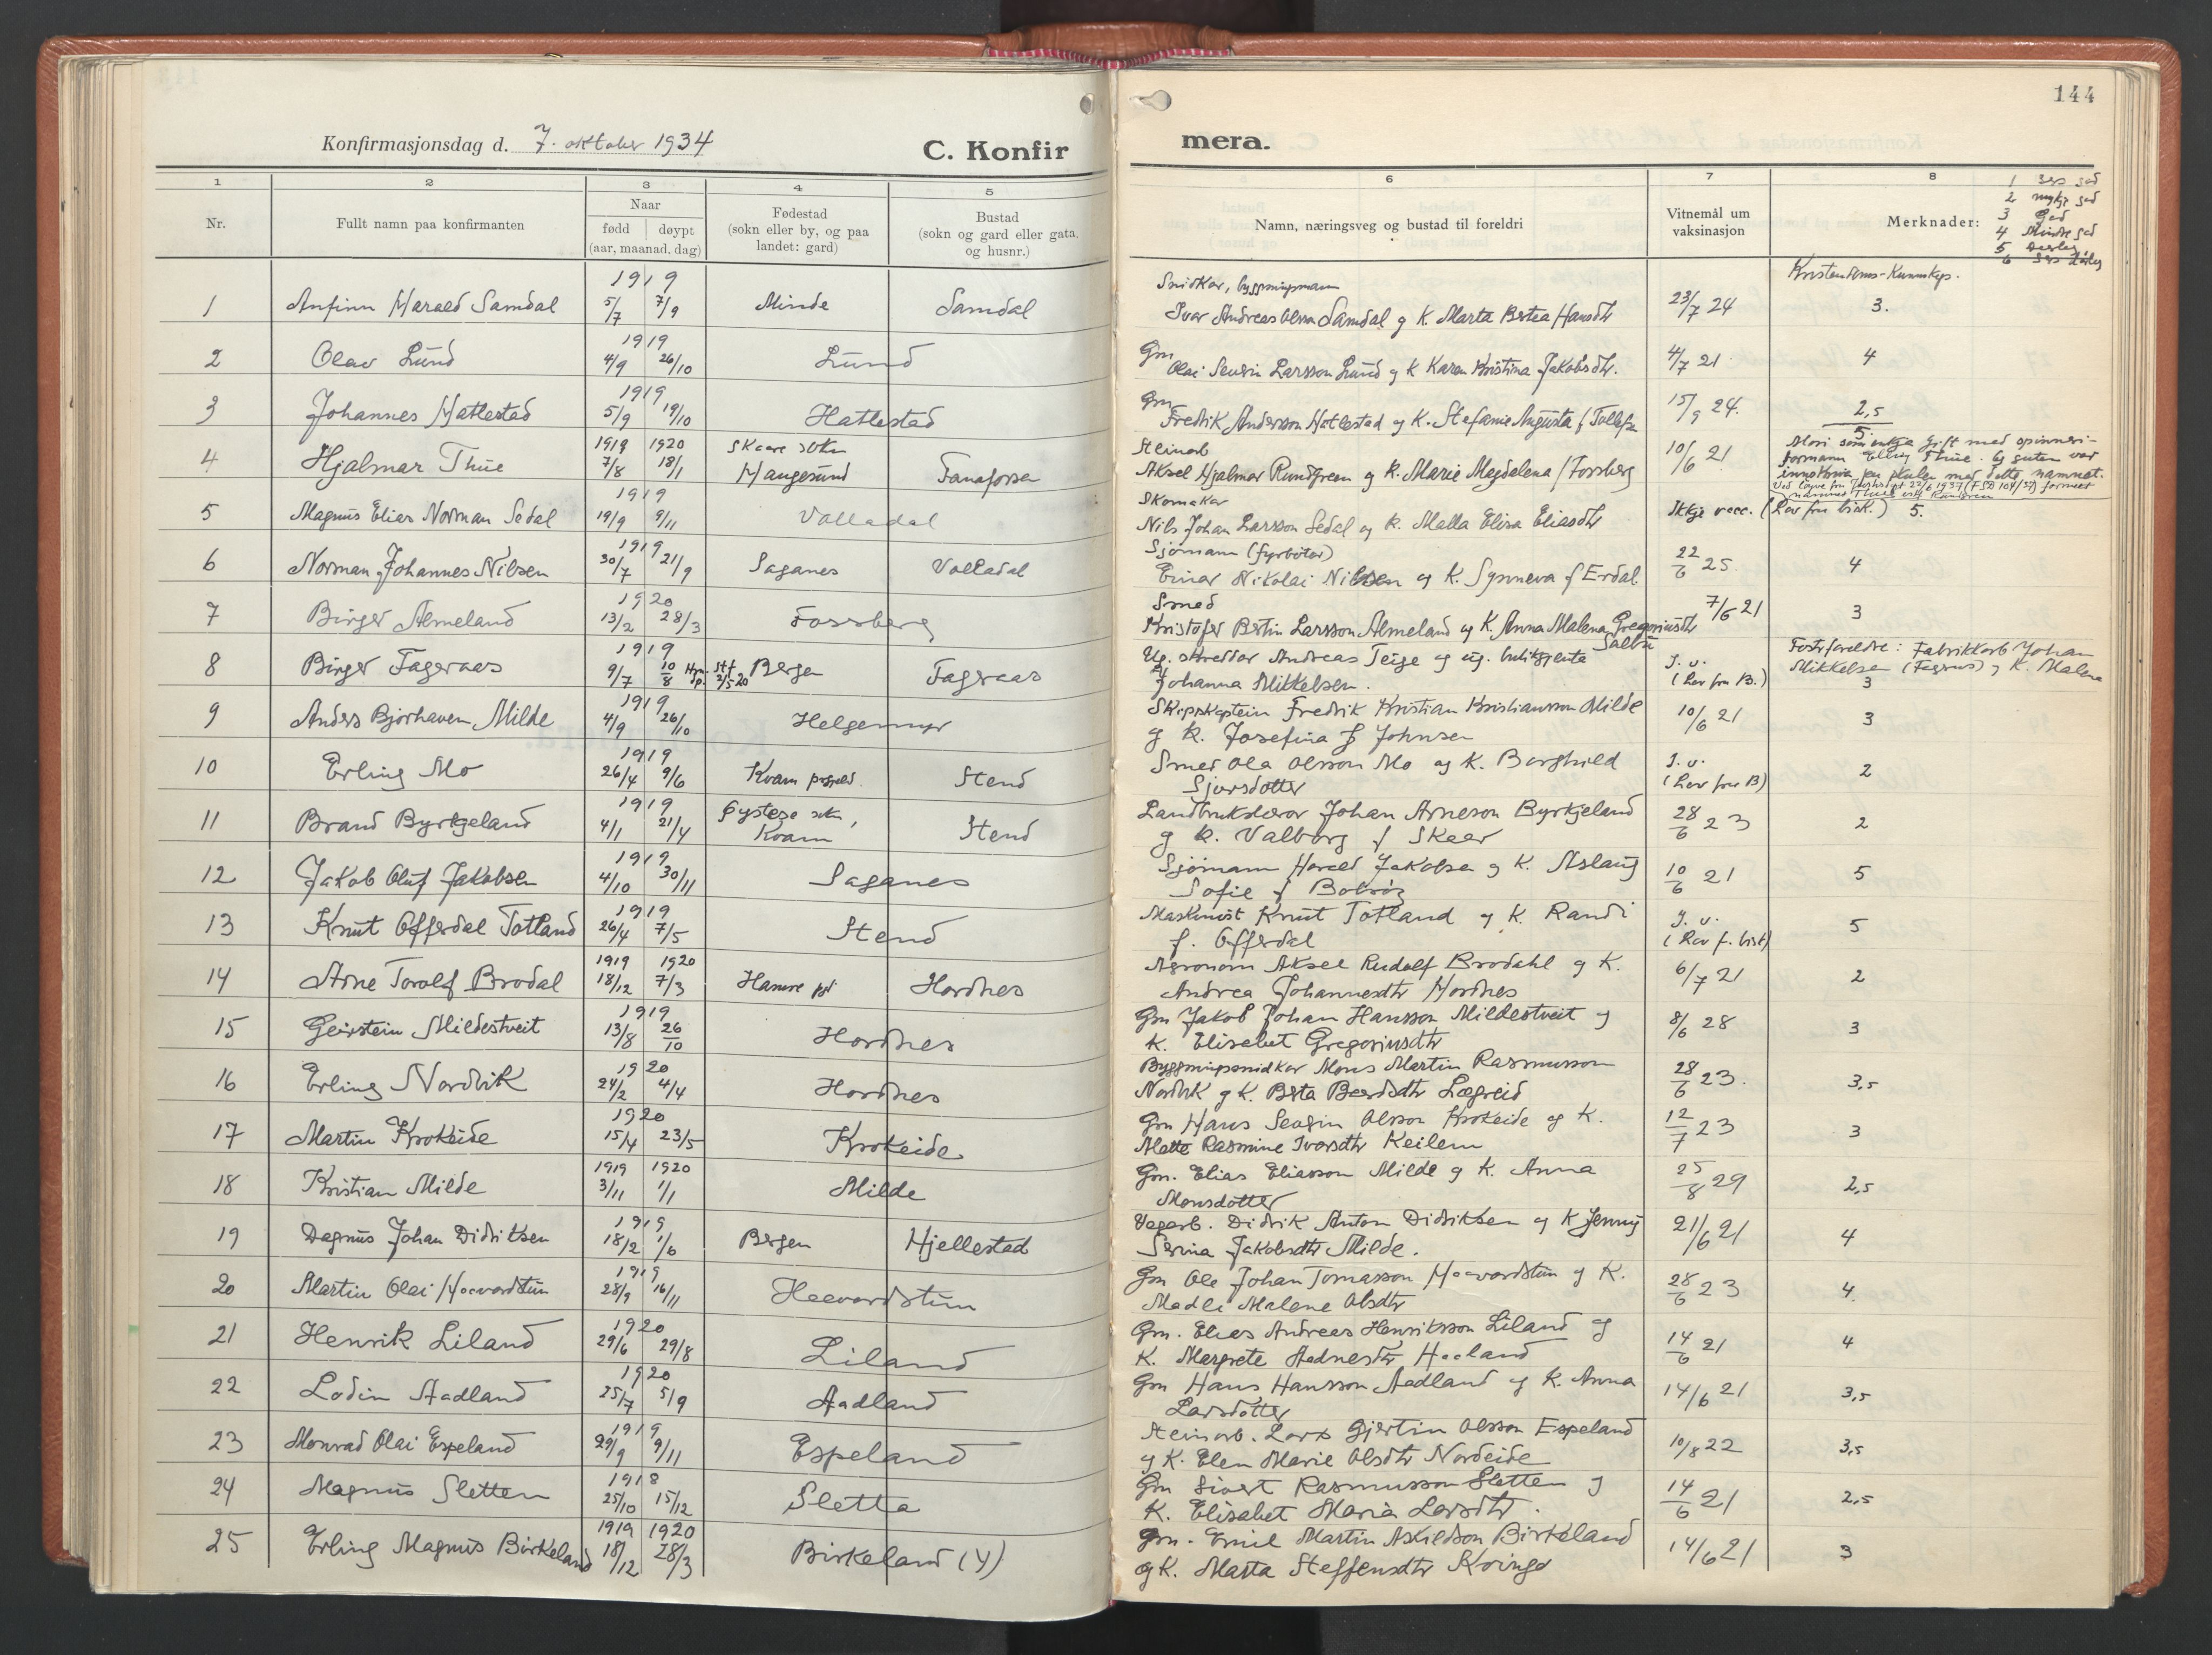 144
Konfirmasjonsdag d. 7. oktober 1934
C. Konfir
mera.
1 2 3 4 5 6 7 8
Nr.
Fullt namn paa konfirmanten
Naar
fødd døypt
(aar, maanad, dag)
Fødestad
(sokn eller by, og paa
landet: gard)
Bustad
(sokn og gard eller gata,
og husnr.)
Namn, næringsveg og bustad til foreldri
Vitnemål um
vaksinasjon
Merknader:
1 sers god
2 mykje god
3 God
4 Mindre god
5 Daarleg
6 Sers dårleg
Kristendoms-Kunnskap.
1919
Snidkar, byggningsmann
1 Anfinn Harald Samdal 5/7 7/9 Minde Samdal Ivar Andreas Olsson Samdal g k. Marta Bertea Hansdtr 23/7 24 3.
1919
Gm
2 Olav Lund 4/9 26/10 Lund Olai Severin Larsson Lund g k Karen Kristina Jakobsdtr. 4/7 21 4
1919
Gm
3 Johannes Hatlestad 5/9 19/10 Hatlestad Fredrik Anderson Hatlestad og k. Stefanie Augusta f Tollefsen 15/9 24. 2,5
1919 1920 Skaare sokn
Steinarb
5
4 Hjalmar Thue 7/8 18/1 Haugesund Fanaforsen Aksel Hjalmar Rundgreen og k. Marie Magdalena f Forsberg 10/6 21
Mori som enkja gift med spinneri-
formann Elling Thue. Og guten var
innskriven paa skulen med dette namnet.
1919
Skomakar
5 Magnus Elias Norman Sedal 19/9 9/11 Valladal Nils Johan Larsson Sedal og k. Malla Elisa Eliasdtr Ikkje vacc. (Lov fra bisk.) 5.
1919
Sjömann (fyrböter)
6 Norman Johannes Nilsen 30/7 21/9 Saganes Valladal Einar Nikolai Nilssen og k. Synneva f Erdal 22/6 25. 4
1920
Smed
7 Birger Almeland 13/2 28/3 Fossberg Kristofer Bertin Larsson Almeland og k. Anna Malena Gregoriusdtr 7/6 21 3
Salbu
1919
8 Birger Fageraas 9/7 10/8 Hjm. dp. stf. 2/5 20 Bergen Fageraas Ug. skreddar Andreas Teige og ug. butikkjenta
Johanna Mikkelsen. I. v. (Lov fra B.)
Fosterforeldre: Fabrikkarb Johan
Mikkelsen (Fageraas) g k. Malena
3
1919
9 Anders Bjorhaven Milde 4/9 26/10 Helgemyr Skipskaptein Fredrik Kristian Kristiansson Milde
g k. Josefina f Johnsen 10/6 21 3
1919
10 Erling Mo 26/4 9/6 Kvam prgjeld. Stend Smed Ola Olsson Mo og k. Borghild
Sjursdotter I. v. (Lov fra B) 2
1919
11 Brand Byrkjeland 4/1 21/4 Øystese sokn, Kvam Stend Landbrukslærar Johan Arneson Byrkjeland
g k. Valborg f Skaar 28/6 23 2
1919
12 Jakob Oluf Jakobsen 4/10 30/11 Saganes Sjömann Harald Jakobsen g k. Aslaug
Sofie f 10/6 21 5
1919
13 Knut Offerdal Totland 26/4 7/5 Stend Maskinist Knut Totland og k. Randi
f. Offerdal I. v. (Lov f. bisk) 5
1919 1920
14 Arne Torolf Brodal 18/12 7/3 Hamre pgj Hordnes Agronom Aksel Rudolf Brodahl g k.
Andrea Johannesdtr Hordnes 6/7 21 2
1919
15 Geirstein Mildestveit 13/8 26/10 Hordnes Gm Jakob Johan Hansson Mildestveit g
k. Elisabet Gregoriusdtr 8/6 28 3
1920
16 Erling Nordvik 24/2 4/4 Hordnes Byggningssnidkar Mons Martin Rasmusson
Nordvik g k. Berta Baardsdtr Lægreid 28/6 23. 3,5
1920
17 Martin Krokeide 15/4 23/5 Krokeide Gm Hans Severin Olsson Krokeide og k.
Mette Rasmine Ivarsdtr Keilen 12/7 23 3
1919 1920
18 Kristian Milde 3/11 1/1 Milde Gm. Elias Eliasson Milde g k. Anna
Monsdotter 25/8 29 2,5
1919
19 Dagnus Johan Didriksen 18/2 1/6 Bergen Hjellestad Vegarb. Didrik Anton Didriksen og k Jenny
Serina Jakobsdtr Milde. 21/6 21 4
1919
20 Martin Olai Haavardstun 28/9 16/11 Haavardstun Gm Ole Johan Tomasson Haavardstun g k.
Madli Malene Olsdtr 28/6 23 4.
1920
21 Henrik Liland 29/6 29/8 Liland Gm. Elias Andreas Henriksson Liland og
k. Margrete Aadnesdtr Haaland 14/6 21 4
1920
22 Lodin Aadland 25/7 5/9 Aadland Gm Hans Hansson Aadland og k. Anna
Larsdotter 14/6 21 3,5
1919
23 Monrad Olai Espeland 29/9 9/11 Espeland Steinarb. Lars Gjertin Olsson Espeland
g k. Elen Marie Olsdtr Nordeide 10/8 22 3,5
1918
24 Magnus Sletten 25/10 15/12 Sletta Gm Sivert Rasmusson Sletten g
k. Elisabet Maria Larsdtr. 14/6 21 2,5
1919 1920
25 Erling Magnus Birkeland 18/12 28/3 Birkeland (Y) Gm. Emil Martin Askildson Birkeland
og k. Marta Steffensdtr Kvinge 14/6 21 3